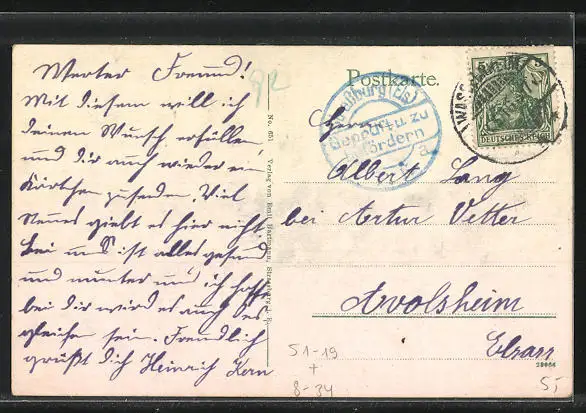 Werter Freund!
Mit diesem will ich
deinen Wunsch erfüllen
und dir auch wieder ein
Kärtchen zusenden. Viel
Neues giebt es hier nicht
bei uns ist alles gesund
und munter und ich hoffe
bei dir wird es auch des
gleichen sein. Freundlich
grüßt dich Heinrich Kern
92
No. 651 Verlag von Emil Hartmann, Strassburg i. E.
Postkarte.
Straßburg (Els)
Geprüft u. zu
befördern
a
5
DEUTSCHES REICH
Herrn
Albert Lang
bei Artur Vetter
Avolsheim
Elsass
51-19
+
8-34
55